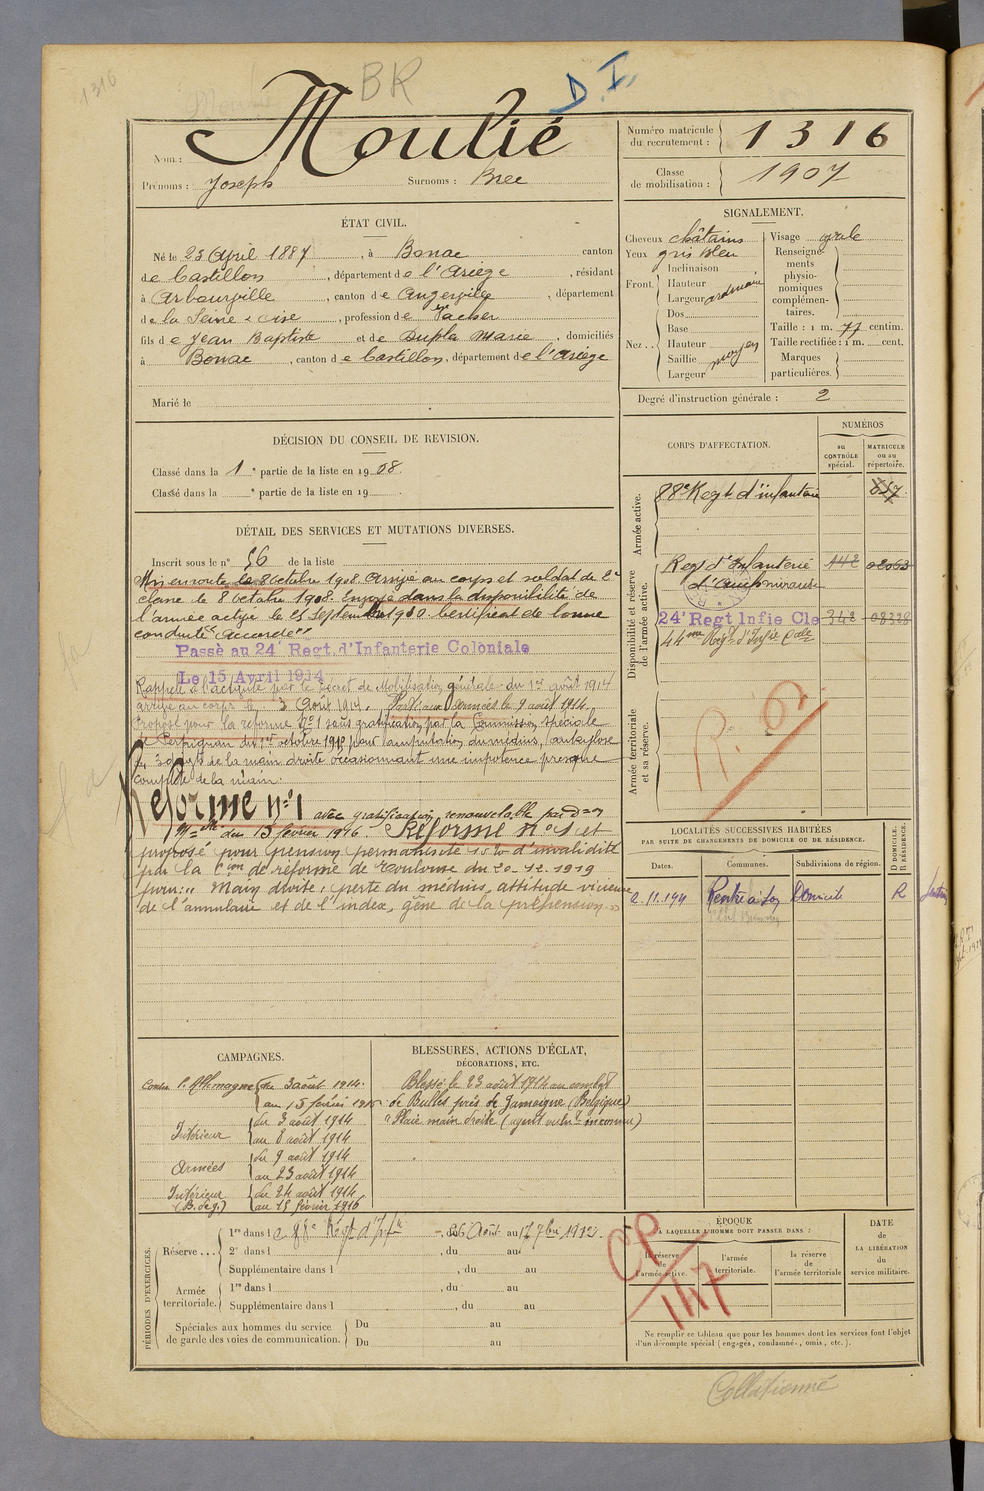 1316
BR
D.I.
Nom : Moulié
Prénoms : Joseph Surnoms : Bree
Numéro matricule du recrutement : 1316
Classe de mobilisation : 1907
ÉTAT CIVIL.
Né le 23 Avril 1887, à Bonac canton
de Castillon, département de l'Ariège, résidant
à Arbouville, canton d'e Angerville, département
de la Seine & Oise, profession de Vacher
fils d e Jean Baptiste et de Dupla Marie, domiciliés
à Bonac, canton d e Castillon, département d e l'Ariège
Marié le
SIGNALEMENT.
Cheveux châtains
Yeux gris bleu
Front. Inclinaison
Hauteur
Largeur ordinaire
Nez.. Dos
Base
Hauteur
Saillie moyen
Largeur
Visage ovale
Renseignements physionomiques complémentaires.
Taille : 1 m. 77 centim.
Taille rectifiée : 1 m. cent.
Marques particulières.
Degré d'instruction générale : 2
DÉCISION DU CONSEIL DE REVISION.
Classé dans la 1e partie de la liste en 1908.
Classé dans la e partie de la liste en 19 .
CORPS D'AFFECTATION.
NUMÉROS
au CONTRÔLE spécial.
MATRICULE ou au répertoire.
Armée active.
88e Regt d'infanterie
Disponibilité et réserve de l'armée active.
Regt d'Infanterie 142 02063
24e Regt Infie Cle 342 08328
44me Régt d'Infie Cole
Armée territoriale et sa réserve.
R. 6.
DÉTAIL DES SERVICES ET MUTATIONS DIVERSES.
Inscrit sous le n° 56 de la liste
Mis en route le 8 Octobre 1908. Arrivé au corps et soldat de 2e
classe le 8 Octobre 1908. Envoyé dans la disponibilité de
l'armée active le 25 Septembre 1910. Certificat de bonne
conduite "Accordé"
Passé au 24e Regt. d'Infanterie Coloniale
Le 15 Avril 1914
Rappelé à l'activité par le Décret de Mobilisation générale du 1er août 1914
arrivé au corps le 3 Août 1914. Parti aux armées le 9 août 1914.
Proposé pour la réforme N°1 sous gratification par la Commission spéciale
de Perpignan du 1er octobre 1915 pour amputation du médius, ankylose
des 3 doigts de la main droite occasionnant une impotence presque
complète de la main.
Réforme n°1 avec gratification renouvelable par Don
Mle du 15 février 1916. Réformé N° 1 et
proposé pour pension permanente d'invalidité
par la Cion de réforme de Toulouse du 20-12-1919
pour : " Main droite : perte du médius, attitude vicieuse
de l'annulaire et de l'index, gêne de la préhension. "
LOCALITÉS SUCCESSIVES HABITÉES
PAR SUITE DE CHANGEMENTS DE DOMICILE OU DE RÉSIDENCE.
Dates. Communes. Subdivisions de région. D DOMICILE. R RÉSIDENCE.
2.11.1911 Rentré à son Domicile R
CAMPAGNES.
Contre l'Allemagne du 3 août 1914.
au 15 février 1916
Intérieur du 3 août 1914
au 8 août 1914
Armées du 9 août 1914
au 23 août 1914
Intérieur (B. de g.) du 24 août 1914
au 15 février 1916
BLESSURES, ACTIONS D'ÉCLAT,
DÉCORATIONS, ETC.
Blessé le 23 août 1914 au combat
de Bulles près de Jamoigne (Belgique)
"Plaie main droite (agent vulnt inconnu)
PÉRIODES D'EXERCICES.
Réserve... 1re dans le 88e Régt d'Infie, du 26 Août au 17 7bre 1912.
2e dans l , du au
Supplémentaire dans l , du au
Armée territoriale. 1re dans l , du au
Supplémentaire dans l , du au
Spéciales aux hommes du service de garde des voies de communication. Du au
Du au
CP 147
ÉPOQUE
À LAQUELLE L'HOMME DOIT PASSER DANS :
la réserve de l'armée active.
l'armée territoriale.
la réserve de l'armée territoriale
DATE DE LA LIBÉRATION du service militaire.
Ne remplir ce tableau que pour les hommes dont les services font l'objet
d'un décompte spécial (engagés, condamnés, omis, etc.).
Collationné